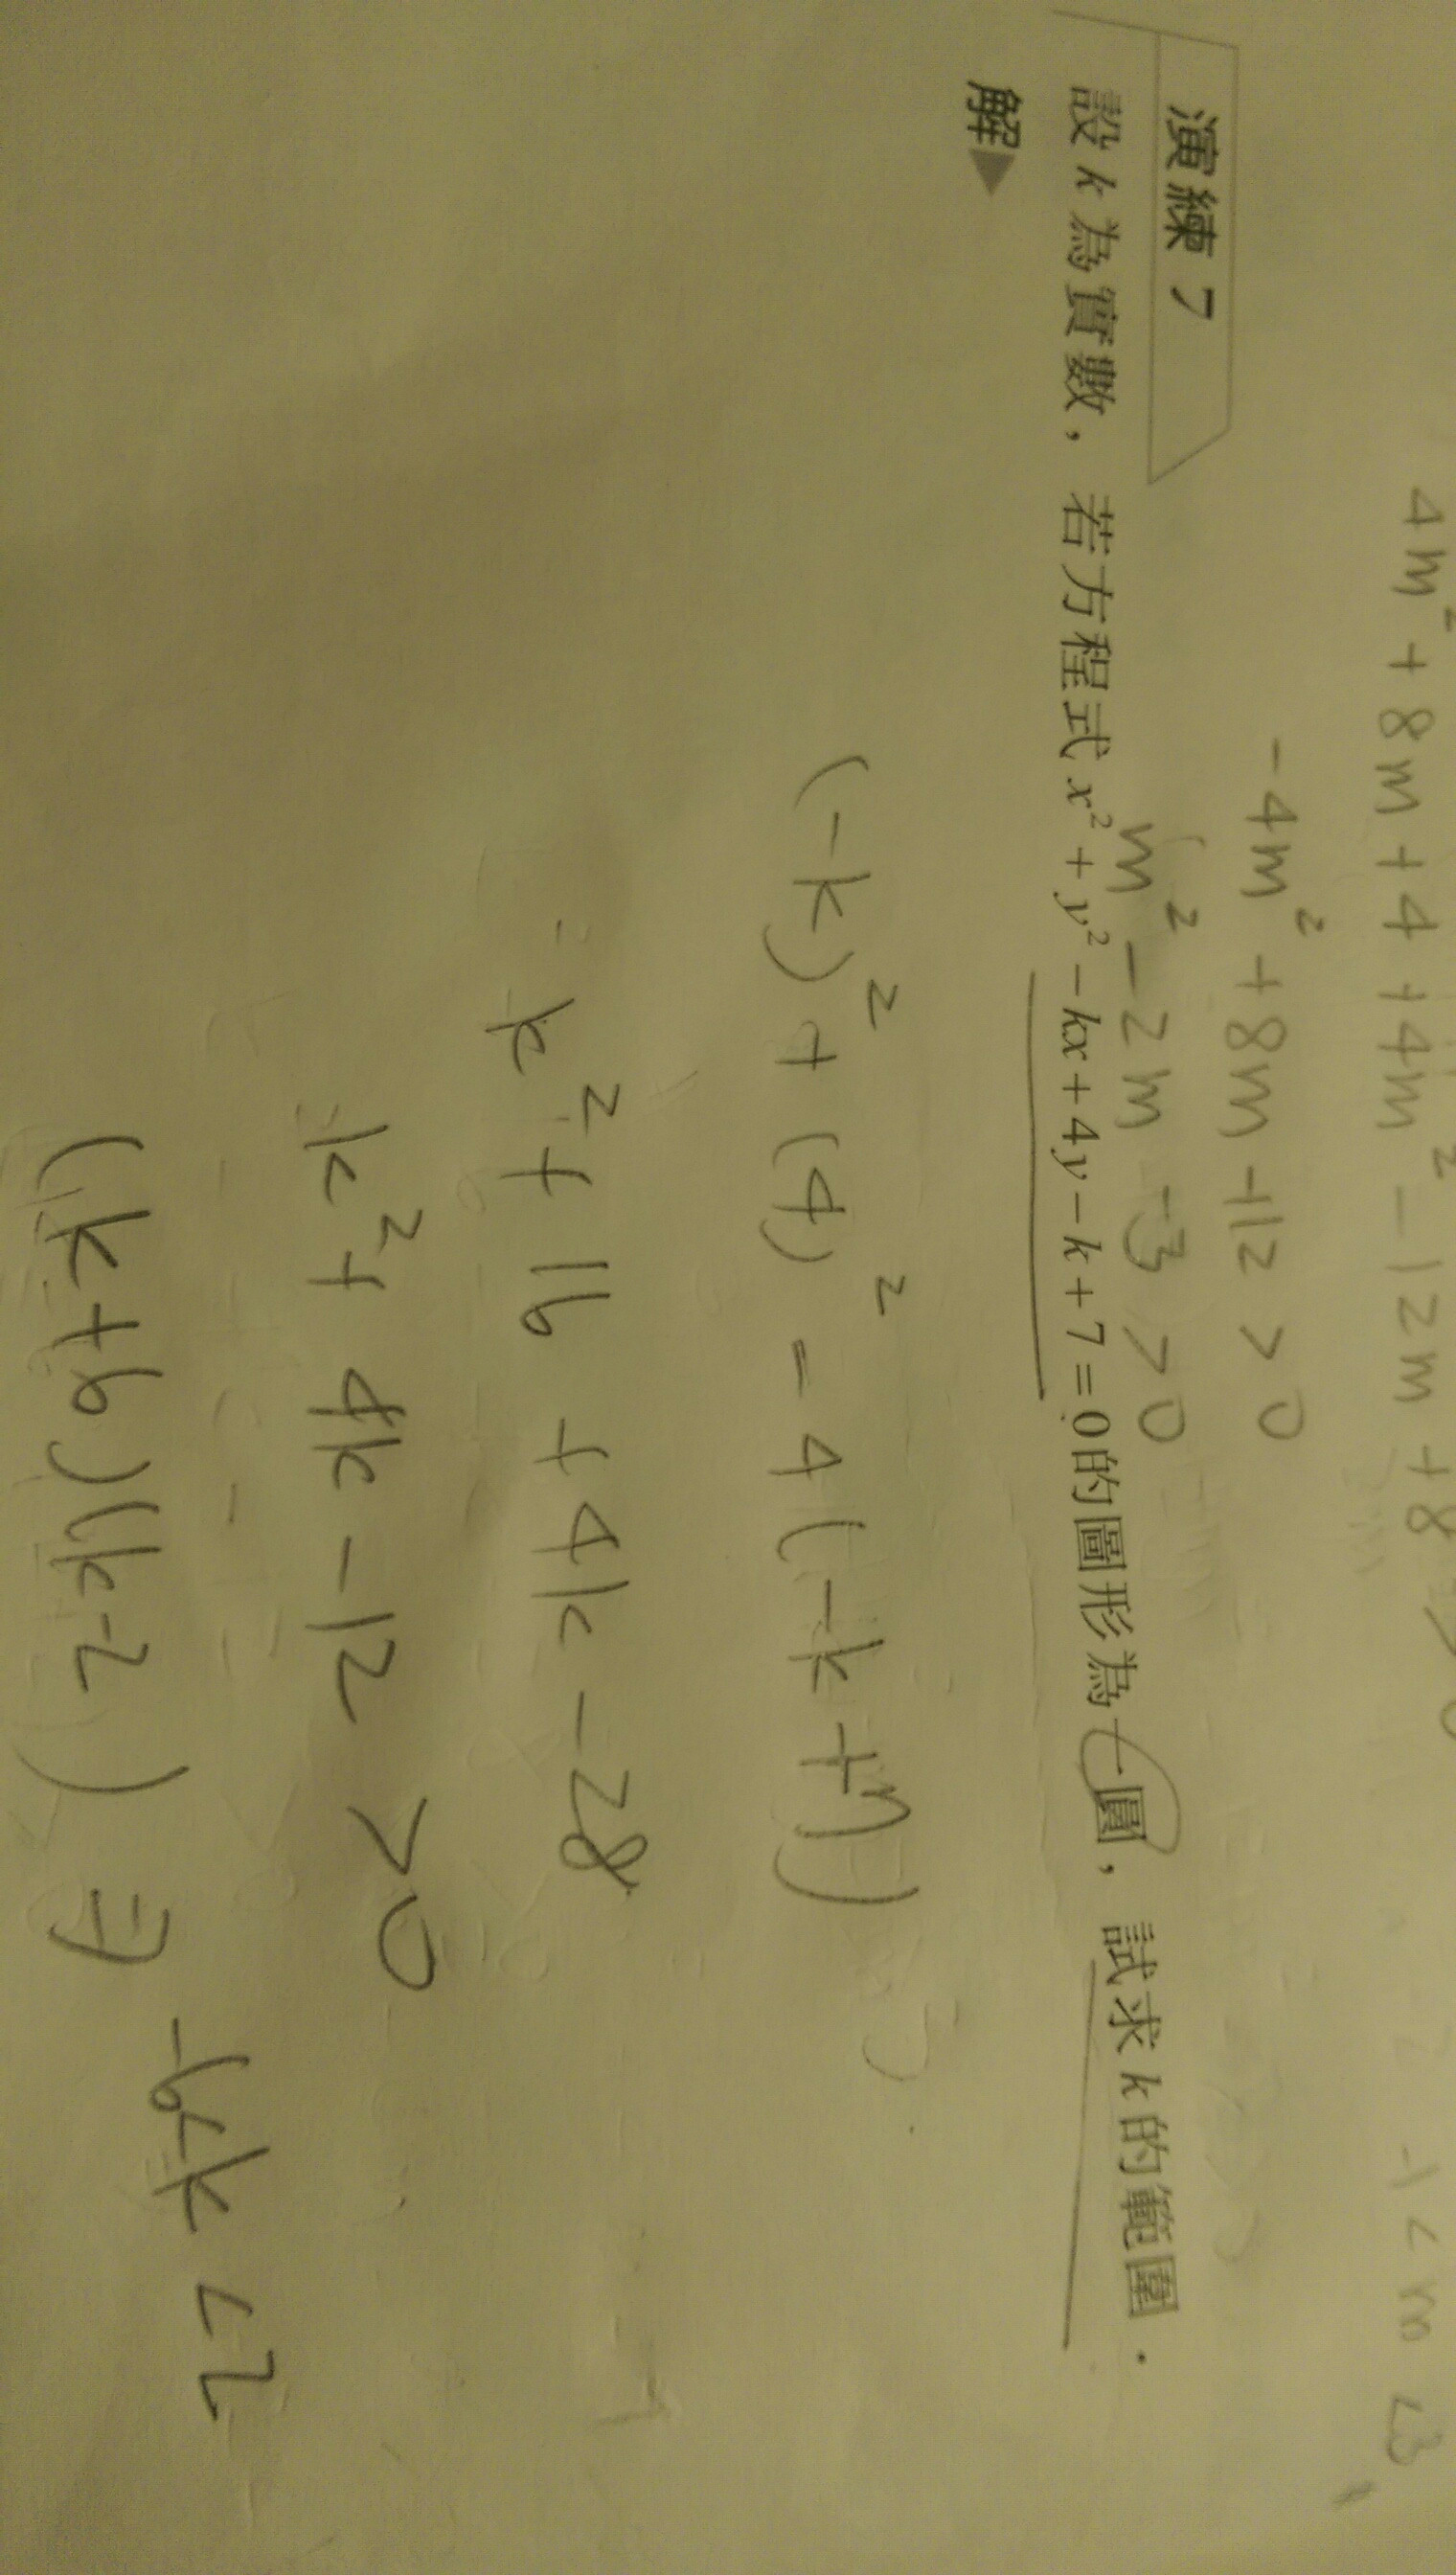 4m² + 8m + 4 + 4m² - 12m + 8
-4m² + 8m + 12 > 0
m² - 2m - 3 > 0
-1 < m < 3
演練 7
設 k 為實數，若方程式 x² + y² - kx + 4y - k + 7 = 0 的圖形為一圓，試求 k 的範圍．
解▶
(-k)² + (4)² - 4(-k+7)
= k² + 16 + 4k - 28
k² + 4k - 12 > 0
(k+6)(k-2)
-6<k<2